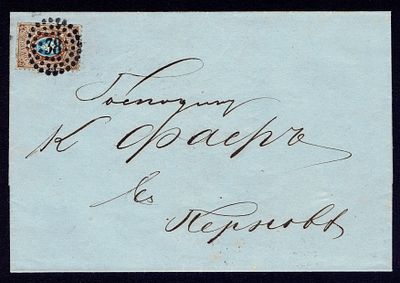 38
Господину
К Фаеръ
въ
Перновъ